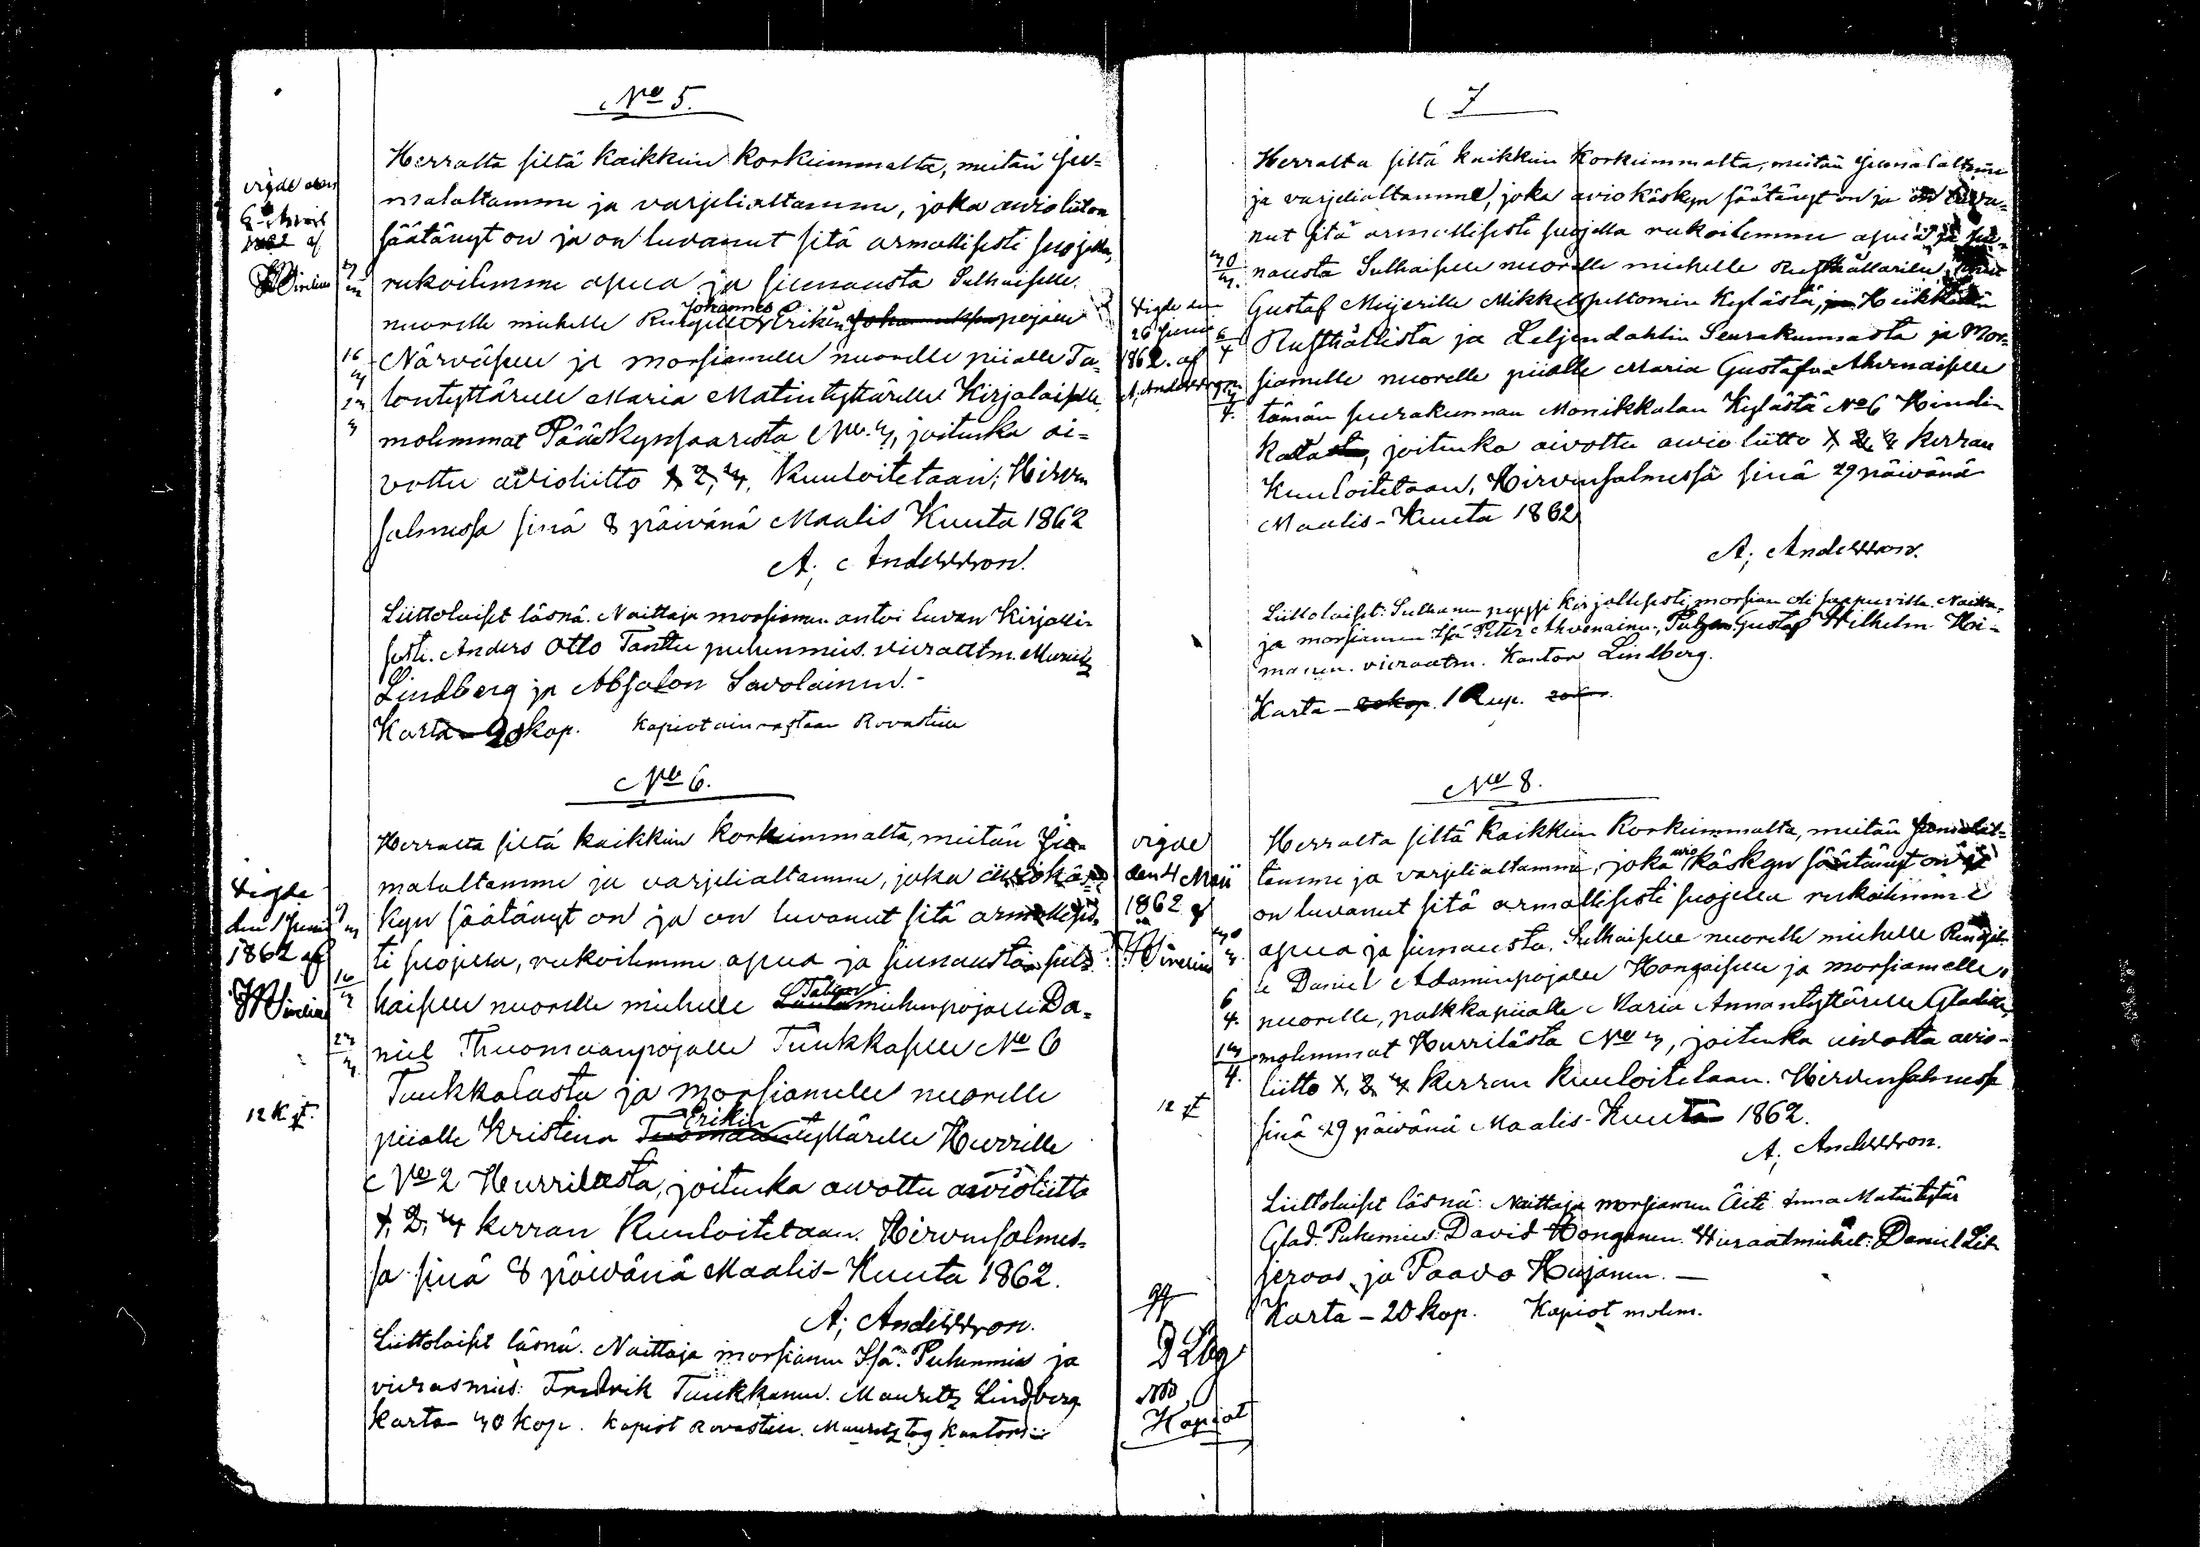 No 5.
Herralta siltä kaikkein korkeimmalta, meitän Ju-
malaltamme ja varjelialtamme, joka avioliiton
säätänyt on ja on luvannut sitä armollisesti suojella,
rukoilemme apua ja siunausta Sulhaiselle
nuorelle miehelle Erikin Johannes pojalle
Närväselle ja morsiamelle nuorelle piialle Ta-
lontyttärelle Maria Matintyttärelle Kirjalaiselle,
molemmat Pääskynsaaresta No 3, joitenka ai-
vottu avioliitto 1, 2, 3, kuuloitetaan; Hirven
salmessa sinä 8 päivänä Maalis Kuuta 1862
A; Andersson.
Liittolaiset läsnä. Naittaja morsiamen antoi luvan Kirjalli-
sesti. Anders Otto Tanttu puhenmies. vieraatm.
Lindberg ja Absalon Savolainen.-
Karta - 20 kop. Kapiot ainoastaan Rovastille
vigde den
1862 af
3
16
3
23
3
No 6.
Herralta siltä kaikkein korkeimmalta, meitän Ju-
malaltamme ja varjelialtamme, joka aviokäs-
kyn säätänyt on ja on luvanut sitä armollises-
ti suojella, rukoilemme apua ja siunausta sul-
haiselle nuorelle miehelle Talon miehenpojalle Da-
niel Thuomaanpojalle Tuukkaselle No 6
Tuukkalasta ja morsiamelle nuorelle
piialle Kristina Erikin tyttärelle Hurrille
No 2 Hurrilasta, joitenka aivottu avioliitto
1, 2, 3 kerran Kuuloitetaan. Hirvensalmes-
sa sinä 8 päivänä Maalis-Kuuta 1862.
A; Andersson.
Liittolaiset läsnä. Naittaja morsiamen Isä. Puhenmies ja
vierasmies: Fredrik Tuukkanen. Mauritz Lindberg
Karta 30 kop. Kapiot Rovastille. Mauritz tog Kantorns
Vigde
den 1 Junii
1862 af
9
3
16
3
23
3
12 K
7
Herralta siltä kaikkein korkeimmalta, meitän Jumalaltamme
ja varjelialtamme, joka aviokäskyn säätänyt on ja on luva-
nut sitä armollisesti suojella rukoilemme apua ja siu-
nausta Sulhaiselle nuorelle miehelle
Gustaf Meijerille Mikkelspeltomin Kylästä,
Rusthållista ja Leljendahlin Seurakunnasta ja Mor-
siamelle nuorelle piialle Maria Gustafva Ahvenaiselle
tämän seurakunnan Monikkalan Kylästä No 6
joitenka aivottu avio liitto 1, 2, 3 kerran
Kuuloitetaan, Hirvensalmessä sinä 29 päivänä
Maalis-Kuuta 1862
A; Andersson.
Liittolaiset: Sulhanen pyysi kirjallisesti, morsian oli saapuvilla. Naitta-
ja morsiamen Isä Peter Ahvenainen, Gustaf Wilhelm Hei-
manen. vieraatm. Kantor Lindberg.
Karta - 20 kop. 1 Rup.
Vigde den
26 Junii
1862. af
A, Andersson
30
3.
6
4
13
4.
No 8.
Herralta siltä kaikkein korkeimmalta, meitän Jumalal-
tamme ja varjelialtamme, joka avio käskyn säätänyt on ja
on luvanut sitä armollisesti suojella rukoilemme
apua ja siunausta. Sulhaiselle nuorelle miehelle Rengil-
le Daniel Adaminpojalle Hongaiselle ja morsiamelle
nuorelle, palkkapiialle Maria Annantyttärelle Gladille,
molemmat Hurrilasta No 3, joitenka aivottu avio-
liitto 1, 2, 3 kerran kuuloitetaan. Hirvensalmessa
sinä 29 päivänä Maalis-Kuuta 1862.
A; Andersson.
Liittolaiset läsnä: Naittaja morsiamen Äiti Anna Matintytär
Glad. Puhemies David Honganen. Vieraatmiehet: Daniel Lil-
jeroos ja Paavo Heijanen. -
Karta - 20 kop. Kapiot molem.
vigde
den 4 Maii
1862 af
30
3.
6
4.
13
4.
12
Kapiot